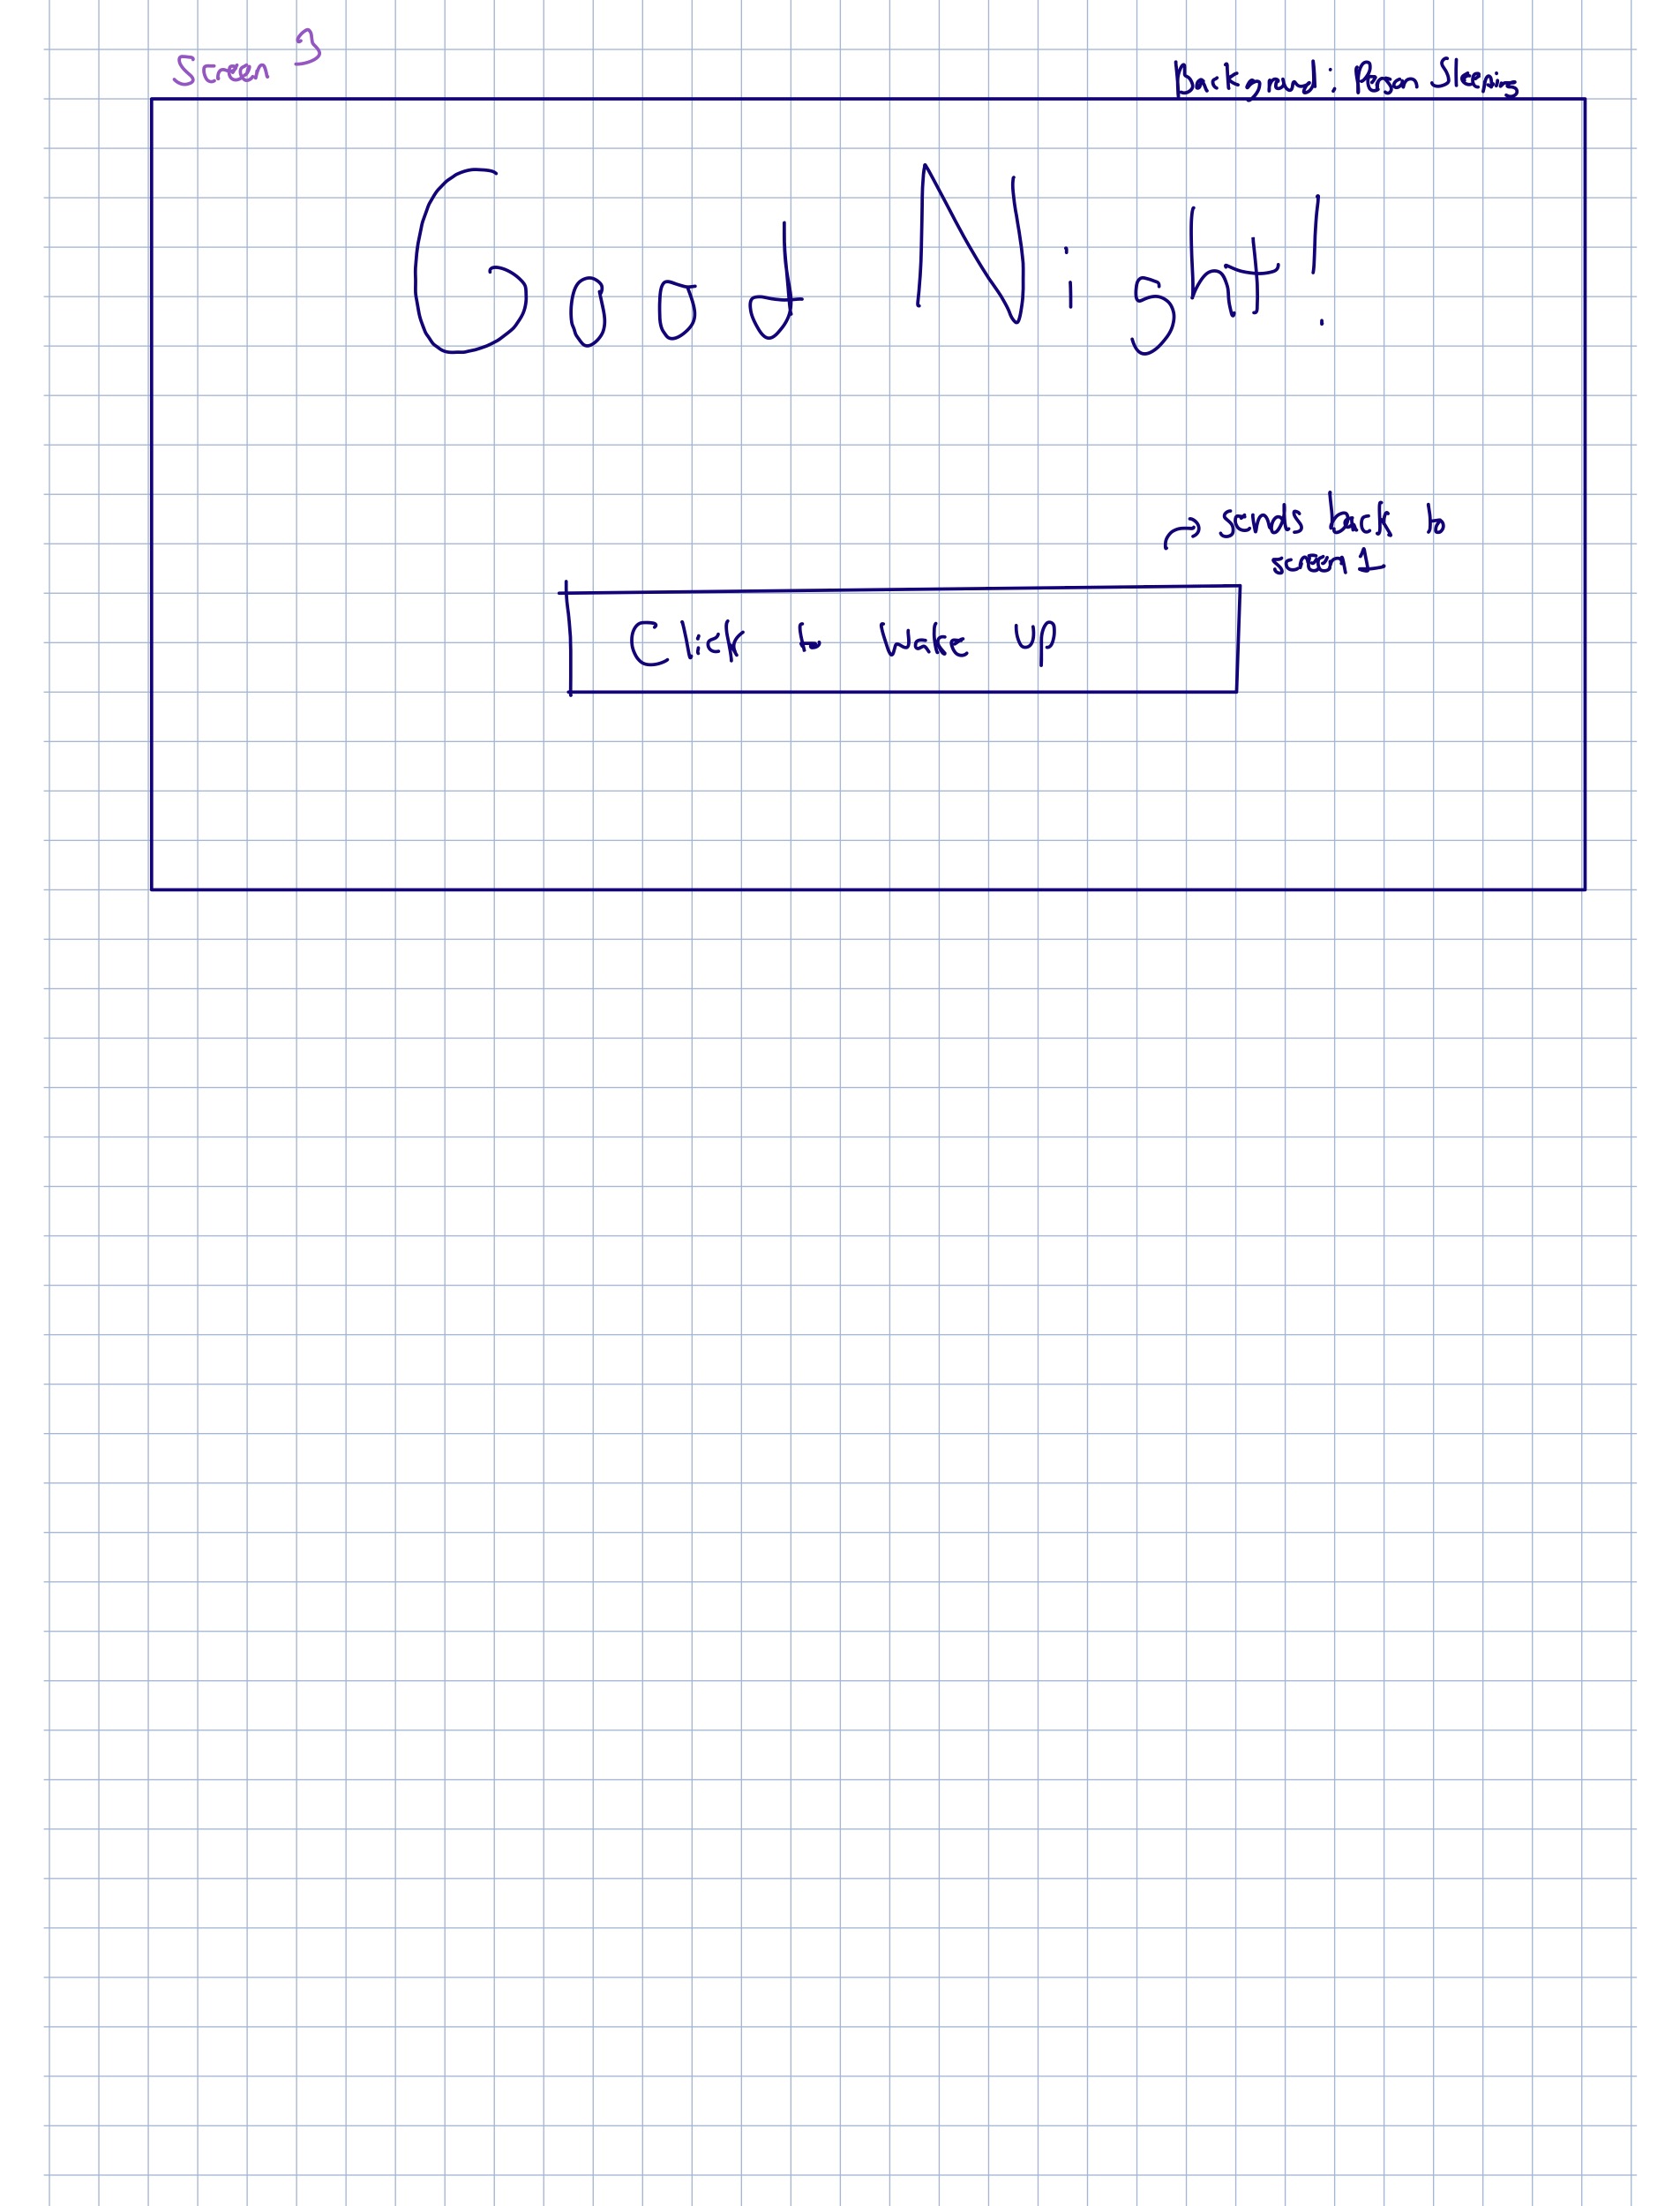 Screen 3
Background: Person Sleeping
Good Night!
→ sends back to
screen 1
Click to wake up